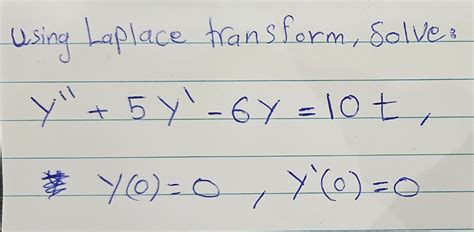 Using Laplace transform, Solve:
y'' + 5y' - 6y = 10t,
y(0) = 0, y'(0) = 0